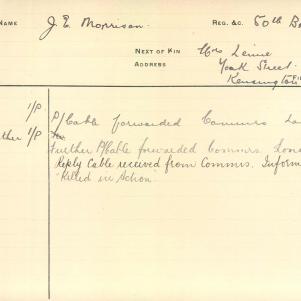 NAME J. E. Morrison. REG. &C. 50th Ba
NEXT OF KIN Mrs
ADDRESS York Street.
Kensington
1/P. P/Cable forwarded Commrs Lo
ther 1/P
Further P/Cable forwarded Commrs. Lon
Reply Cable received from Commrs. Inform
"Killed in Action"